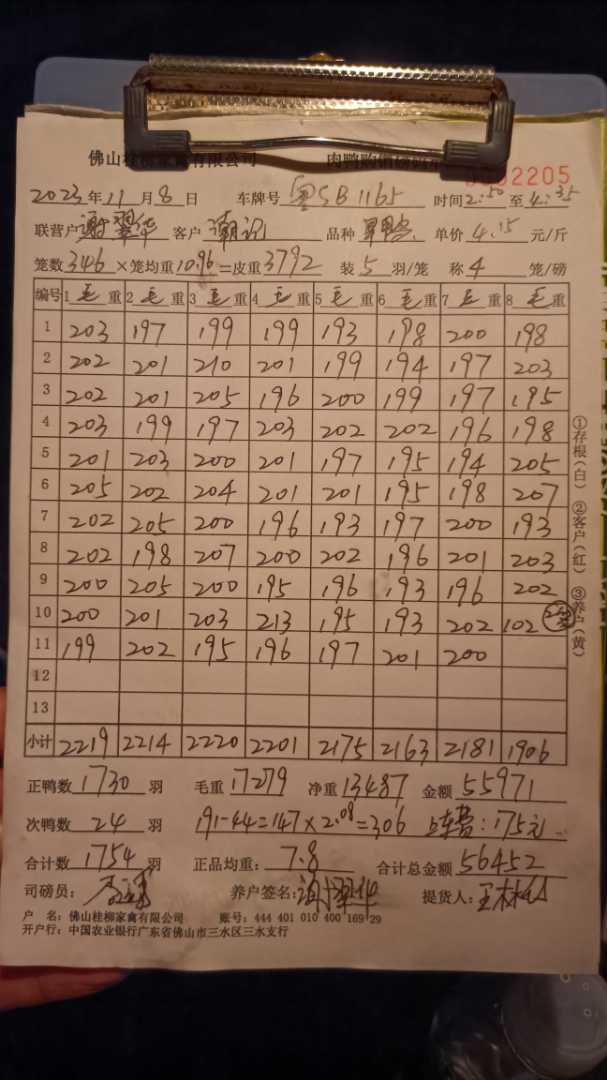 佛山桂柳家禽有限公司 肉鸭购销磅码单
0002205
2023年11月8日 车牌号 粤SB1165 时间2:50至4:35
联营户 谢翠华 客户 潮记 品种 单价 4.15 元/斤
笼数346×笼均重10.96=皮重3792 装5羽/笼 称4笼/磅
编号 1毛重 2毛重 3毛重 4毛重 5毛重 6毛重 7毛重 8毛重
1 203 197 199 199 193 198 200 198
2 202 201 210 201 199 194 197 203
3 202 201 205 196 200 199 197 195
4 203 199 197 203 202 202 196 198
5 201 203 200 201 197 195 194 205
6 205 202 204 201 201 195 198 207
7 202 205 200 196 193 197 200 193
8 202 198 207 200 202 196 201 203
9 200 205 200 195 196 193 196 202
10 200 201 203 213 195 193 202 102
11 199 202 195 196 197 201 200
12
13
小计 2219 2214 2220 2201 2175 2163 2181 1906
正鸭数 1730 羽 毛重 17279 净重 13487 金额 55971
次鸭数 24 羽 191-44=147×2.08=306 上车费:175元
合计数 1754 羽 正品均重: 7.8 合计总金额 56452
司磅员: 养户签名: 谢翠华 提货人:
户 名: 佛山桂柳家禽有限公司 账号: 444 401 010 400 169 29
开户行: 中国农业银行广东省佛山市三水区三水支行
①存根(白) ②客户(红) ③养户(黄)